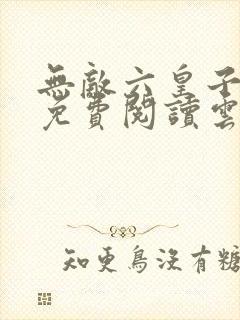 無敵六皇子
免費閱讀雲
知更鳥沒有糖